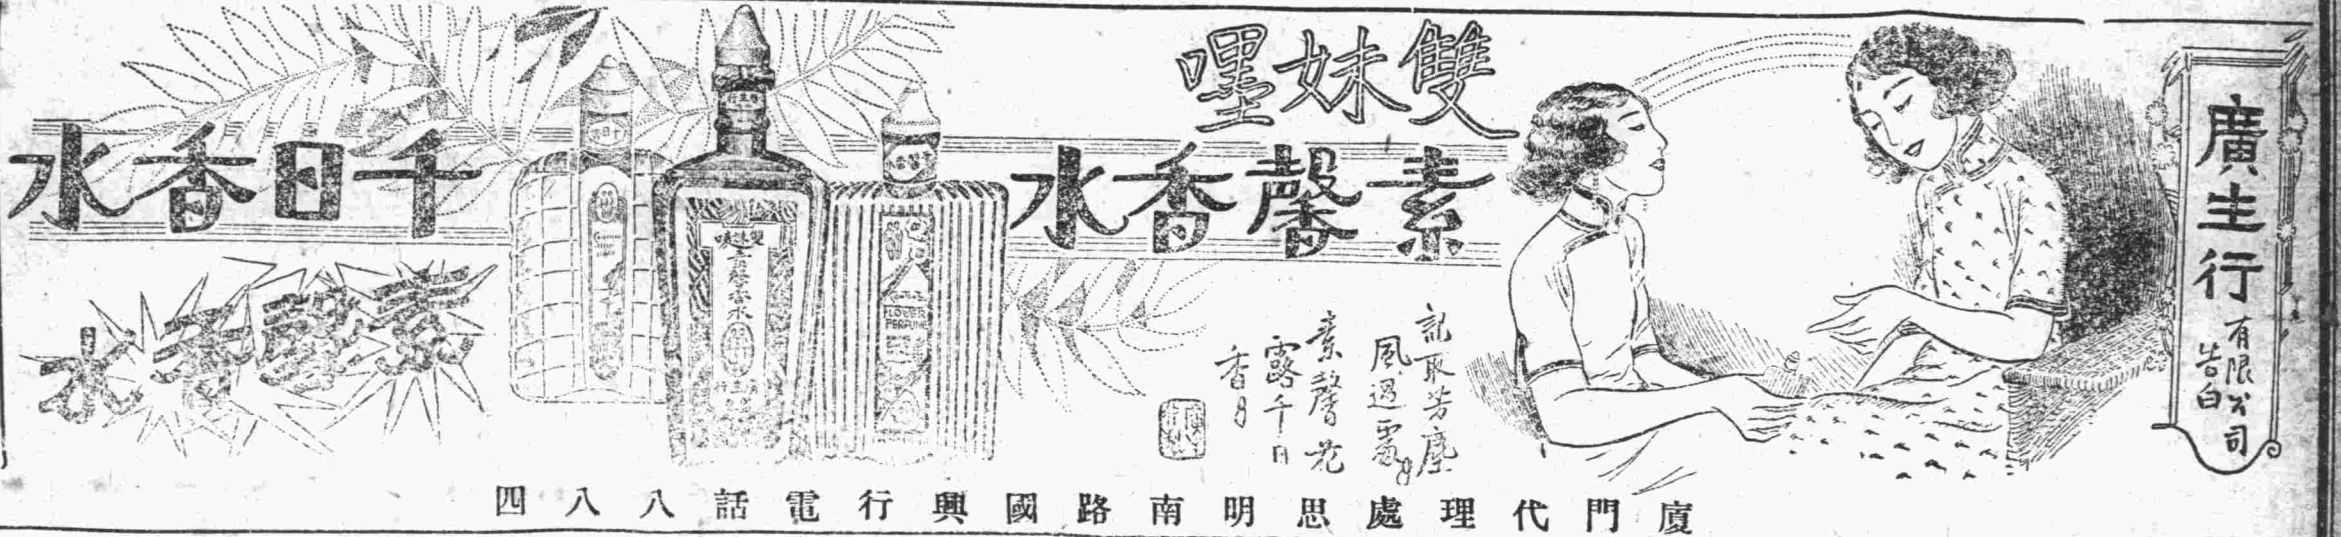 廣生行
有限公司
告白
雙妹嘜
素馨香水
千日香水
素馨香水
記取芳塵
風過處
素馨花
露千日
香
雙妹嘜
素馨香水
FLOWER
PERFUME
廈門代理處思明南路國興行電話八八四